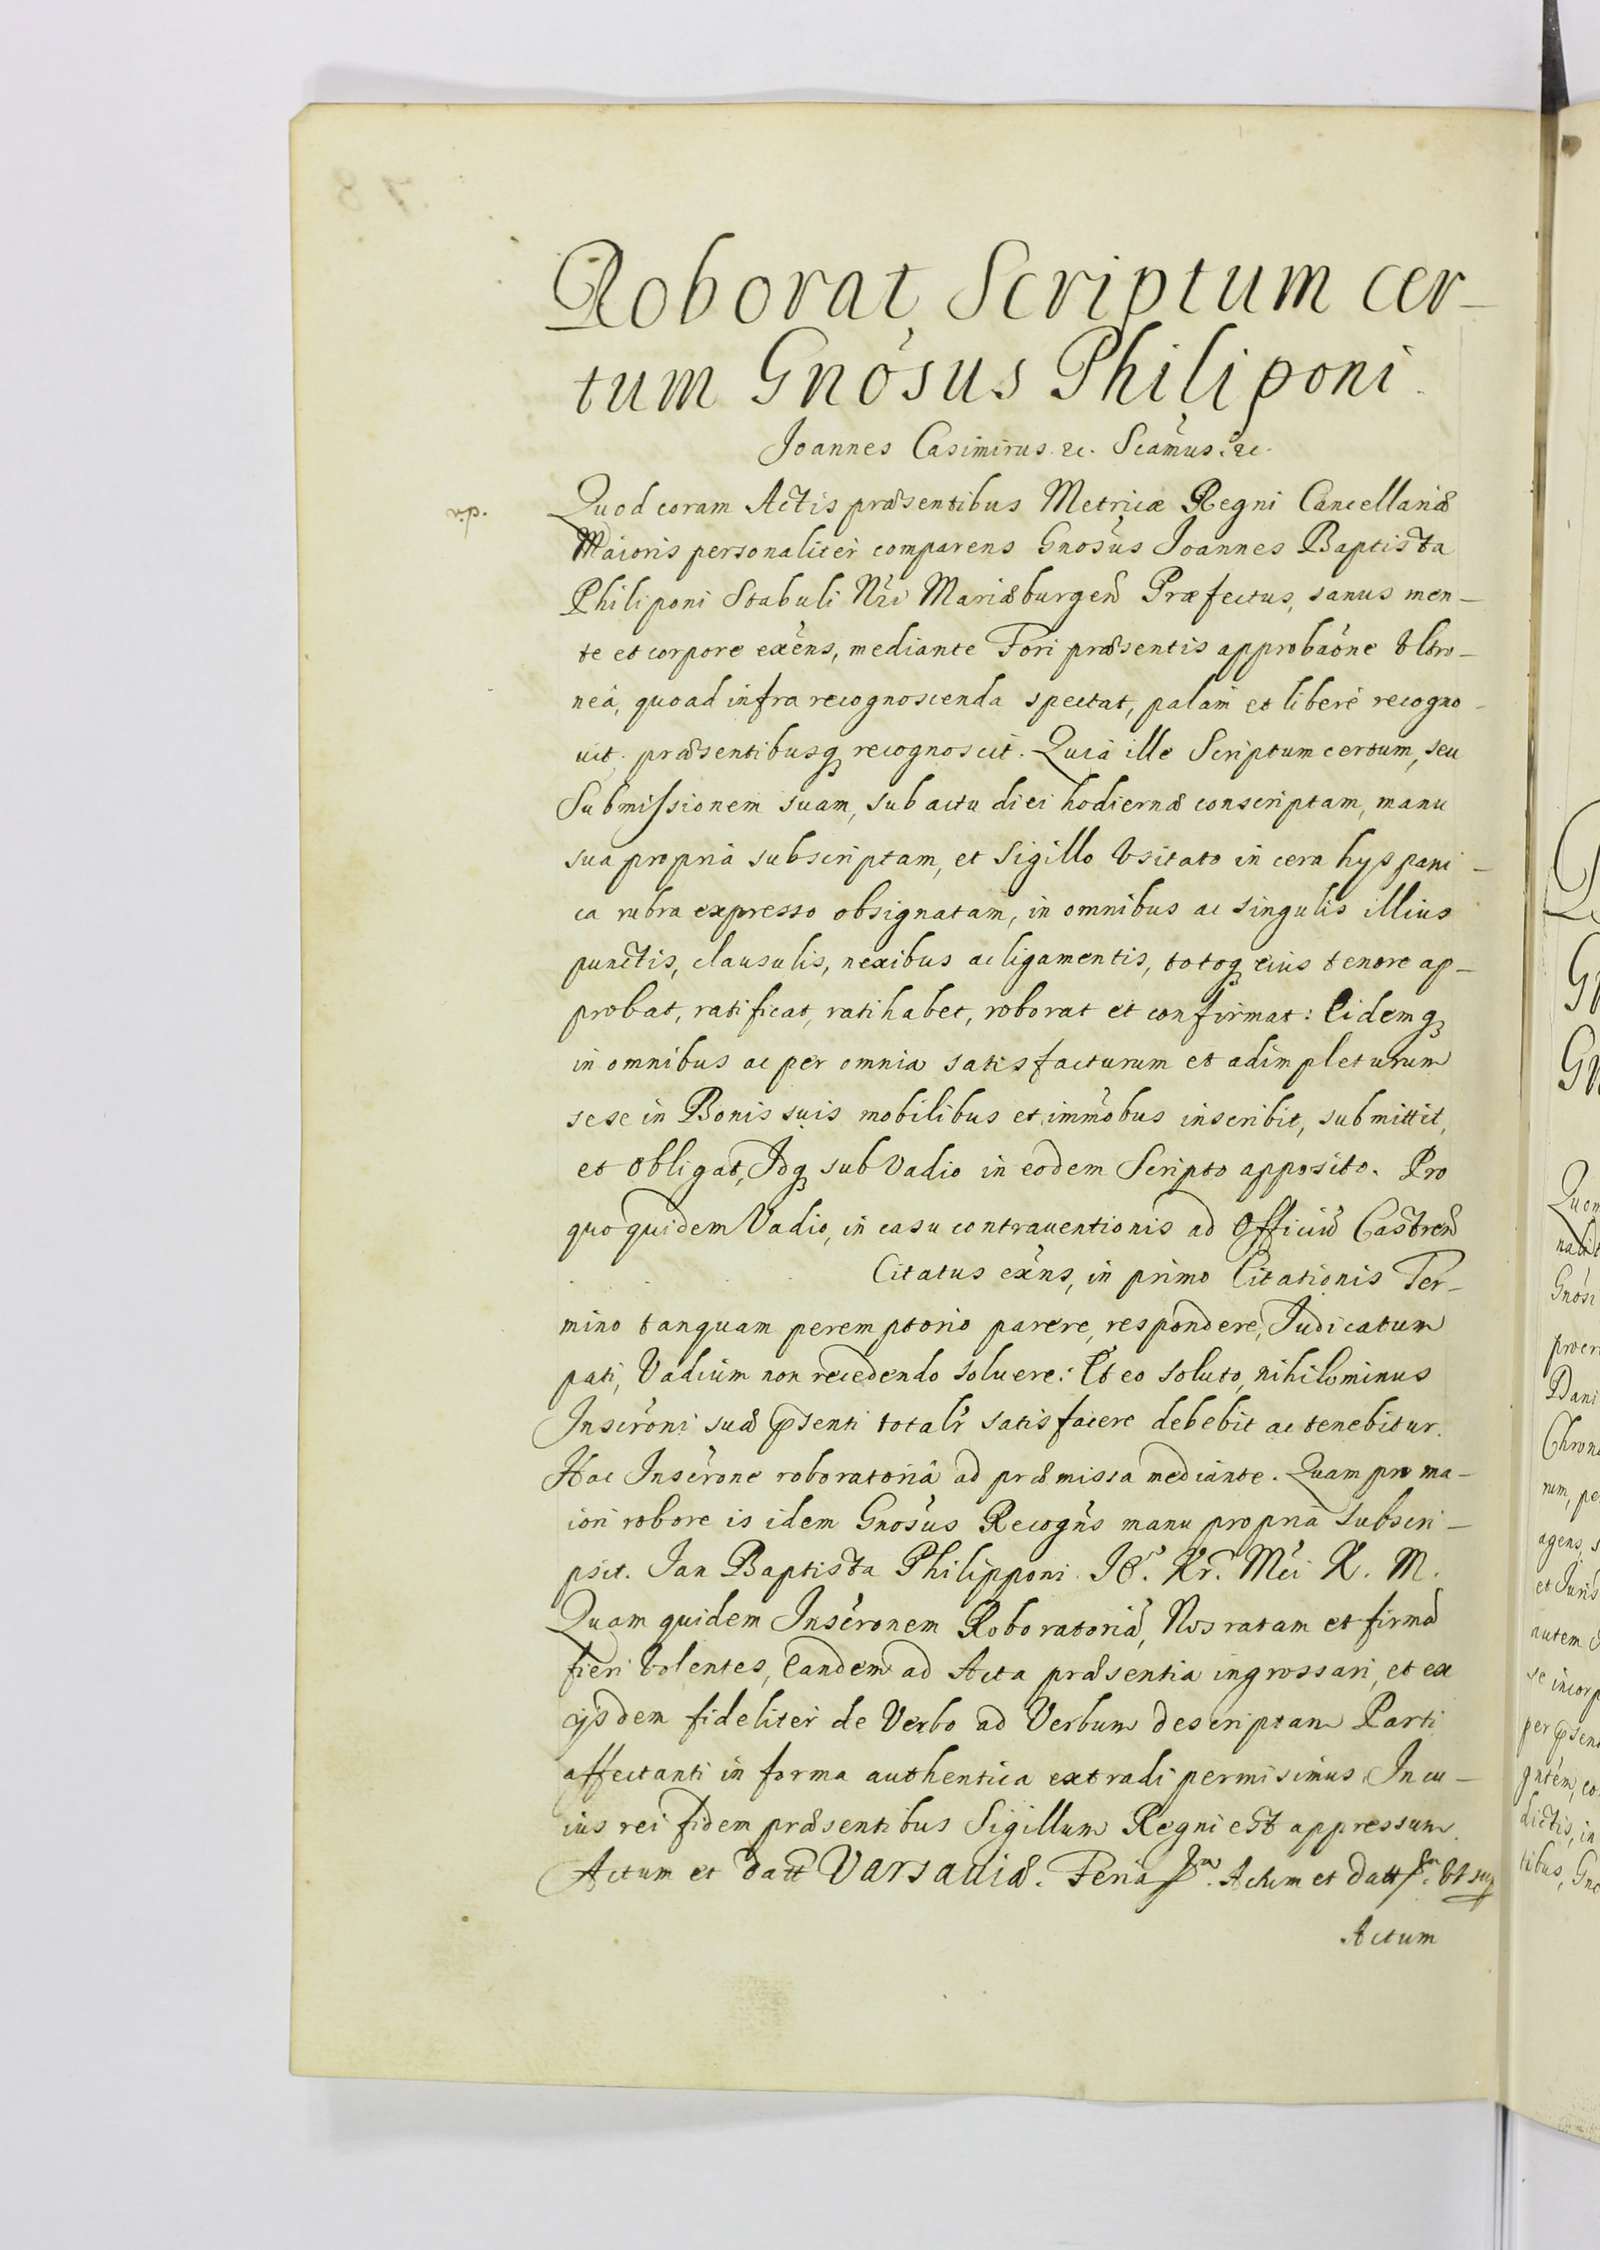 Roborat Scriptum cer-
tum Gnosus Philiponi
Joannes Casimirus &c. Scamus. &c.
Quod coram Actis præsentibus Metricæ Regni Cancellariæ
Maioris personaliter comparens Gnosus Joannes Baptista
Philiponi Stabuli Nri Mariæburgen Præfectus, sanus men-
te et corpore exens, mediante Fori præsentis approbaone Vltro-
neâ, quoad infra recognoscenda spectat, palam et liberè recogno-
uit. præsentibusq recognoscit. Quia ille Scriptum certum, seu
Submissionem suam, sub actu diei hodiernæ conscriptam, manu
sua propria subscriptam, et Sigillo Vsitato in cera hyspani-
ca rubra expresso obsignatam, in omnibus ac singulis illius
punctis, clausulis, nexibus ac ligamentis, totoq eius tenore ap-
probat, ratificat, ratihabet, roborat et confirmat: Eidemq
in omnibus ac per omnia satisfacturum et adimpleturum
sese in Bonis suis mobilibus et immobus inscribit, submittit,
et obligat, Idq sub Vadio in eodem Scripto apposito. Pro
quo quidem Vadio, in casu contrauentionis ad Officiu Castren
Citatus exns, in primo Citationis Ter-
mino tanquam peremptorio parere, respondere, Judicatum
pati, Vadium non recedendo soluere: Et eo soluto, nihilominus
Inscroni suæ psenti totalr satisfacere debebit ac tenebitur.
Hac Inscrone roboratoriâ ad præmissa mediante. Quam pro ma-
iori robore is idem Gnosus Recogns manu propria subscri-
psit. Jan Baptista Philipponi Kr. Mci K. M.
Quam quidem Inscronem Roboratoria, Nos ratam et firma
fieri Volentes, Eandem ad Acta præsentia ingrossari, et ex
ijsdem fideliter de Verbo ad Verbum descriptam Parti
affectanti in forma authentica extradi permisimus. In cu-
ius rei fidem præsentibus Sigillum Regni est appressum.
Actum et datt Varsauiæ. Feria Actum et datt Vt sup
Actum